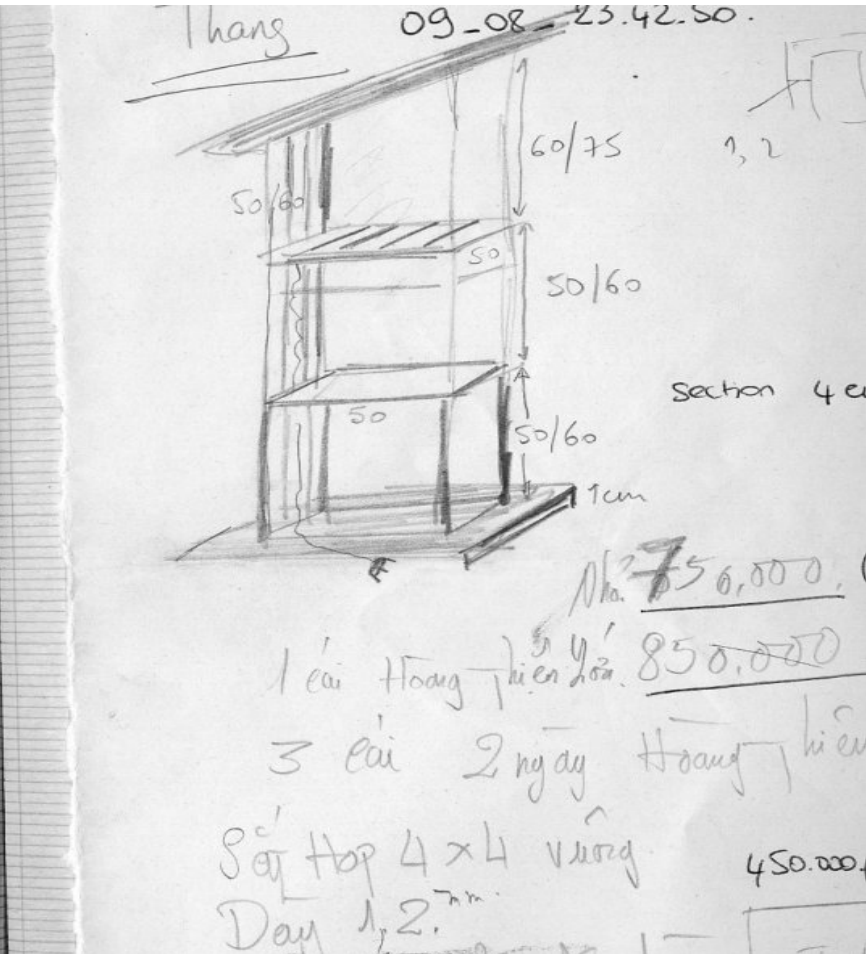 Thang
09_08_23.42.50.
60/75
1, 2
50/60
50
50/60
section 4
50
50/60
1cm
Nhỏ 750,000.
1 cái Hoàng Thiên Lớn. 850.000
3 cái 2 ngày Hoàng Thiên
Sắt Hop 4 x 4 vuông
450.000
Day 1,2.mm.